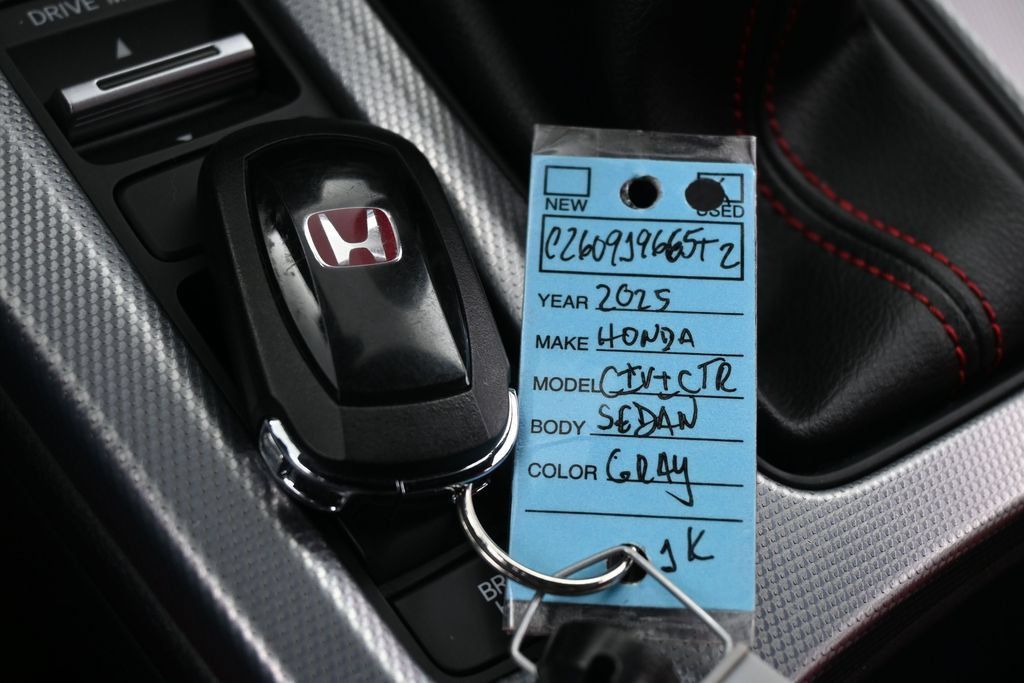 DRIVE
NEW USED
C260919665T2
YEAR 2025
MAKE HONDA
MODEL CIVIC TR
BODY SEDAN
COLOR GRAY
1K
BR